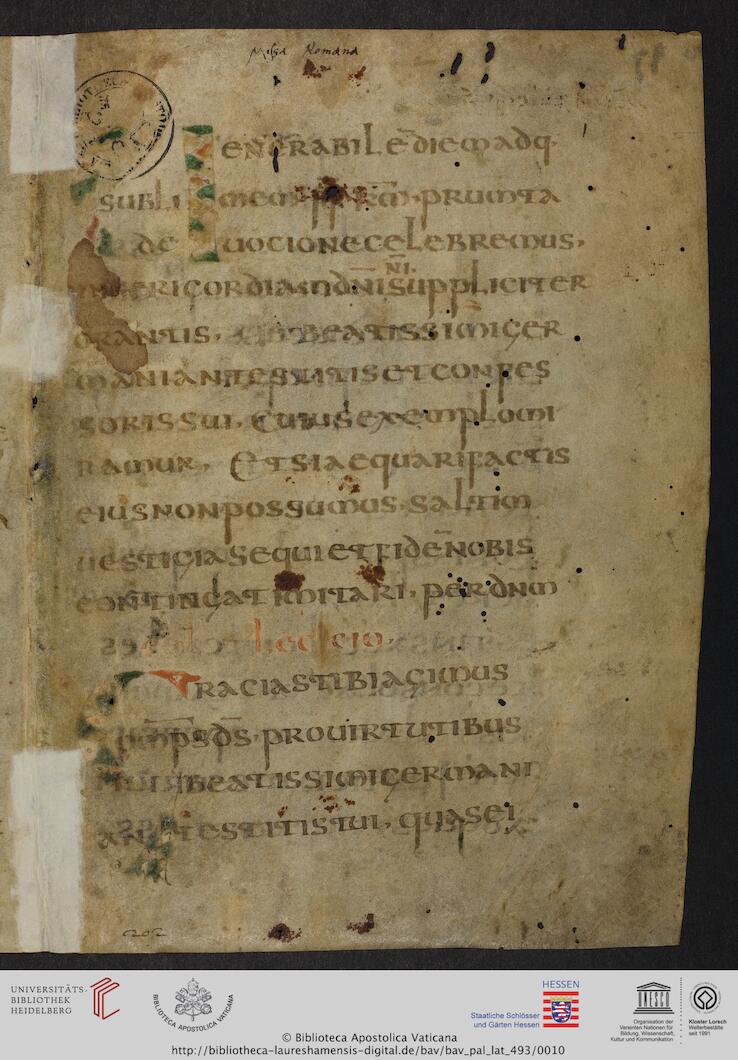 Missa Romana
enerabile diem adq.
sublimem
de uocione celebremus,
misericordiam dn̄i n̄i. suppliciter
orantis, beatissimi ger
mani antestitis et confes
soris sui, cuius exemplo mi
ramur, Et si aequari factis
eius non possumus. saltim
uesticia sequi et fidē nobis
contingat imitari. per dnm
Graciastibi agimus
omps ds. pro uirtutibus
tuis beatissimi germani
antestitis tui, quasei
202
UNIVERSITÄTS-
BIBLIOTHEK
HEIDELBERG
BIBLIOTECA APOSTOLICA VATICANA
HESSEN
Staatliche Schlösser
und Gärten Hessen
UNESCO
Organisation der
Vereinten Nationen für
Bildung, Wissenschaft,
Kultur und Kommunikation
Kloster Lorsch
Welterbestätte
seit 1991
© Biblioteca Apostolica Vaticana
http://bibliotheca-laureshamensis-digital.de/bav/bav_pal_lat_493/0010